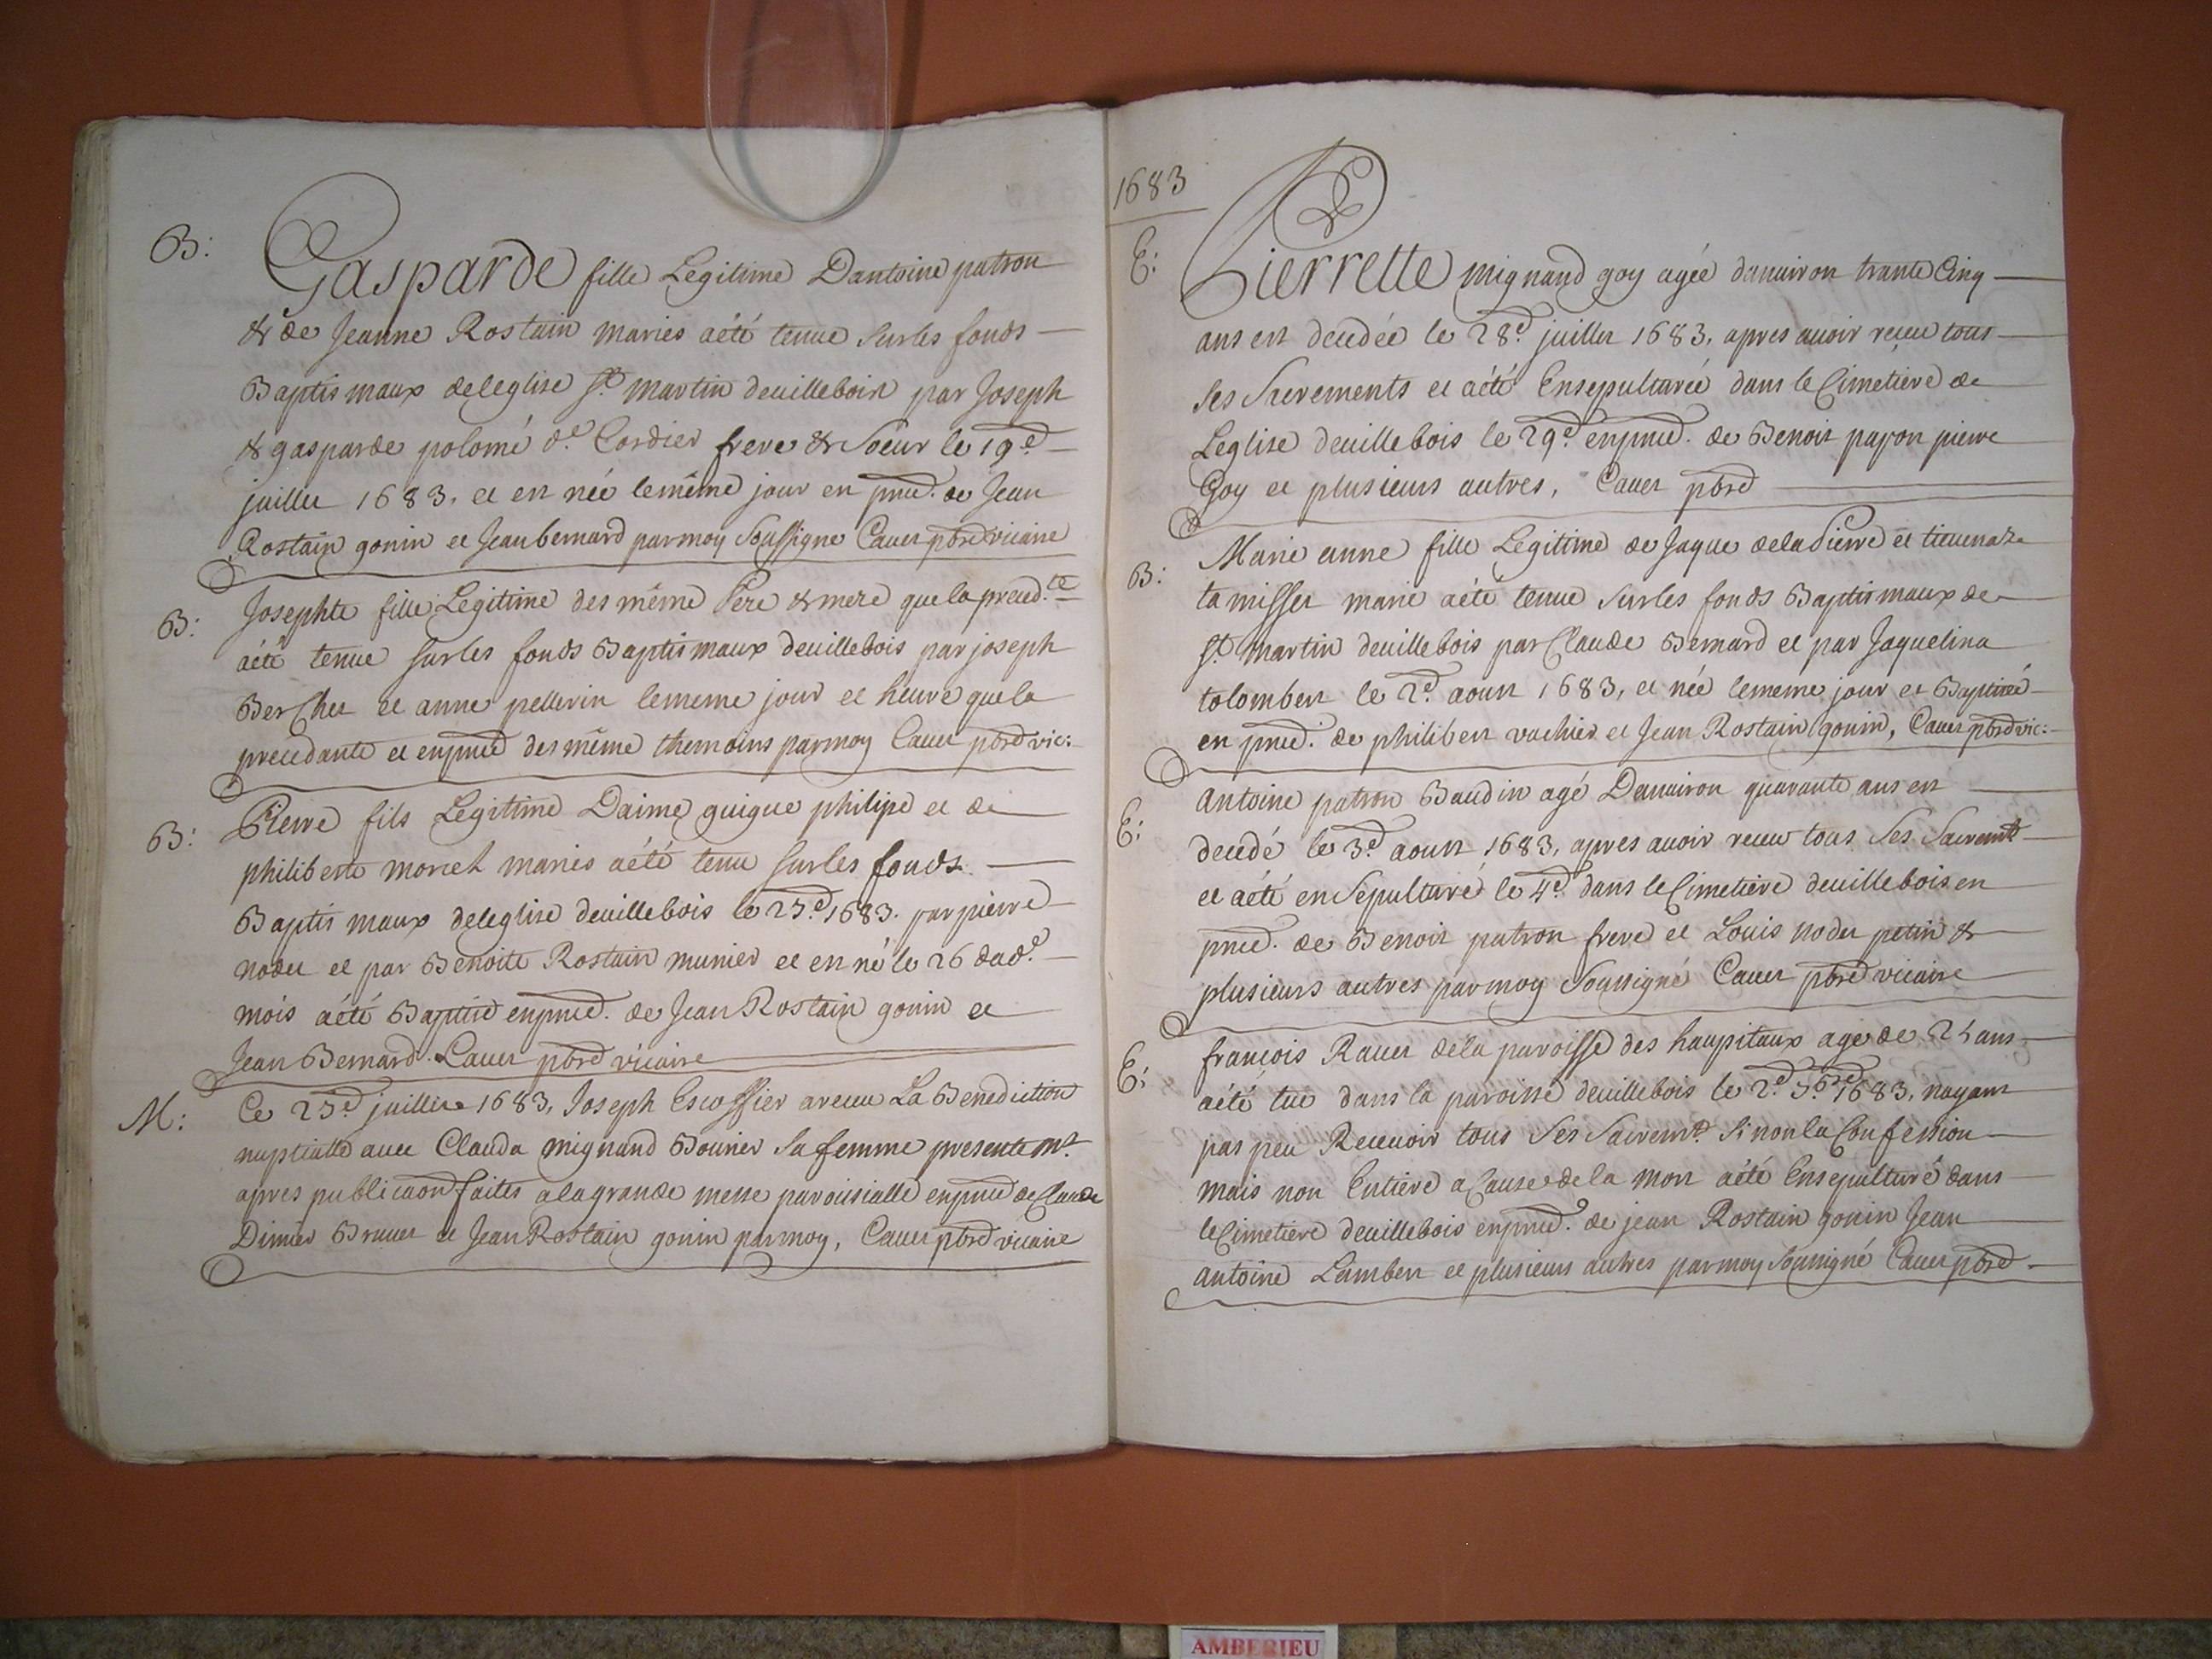 B:
Gasparde fille Legitime Dantoine patron
& de Jeanne Rostain mariés aété tenue Surles fonds
Baptismaux deleglise st. martin deuillebois par Joseph
& gasparde polomé d.e Cordier frere & Soeur le 19.e
juillet 1683. et est née lemême jour en pnce. de Jean
Rostain gonin et Jean bernard parmoy Soussigne Cauet pbre vicaire
B:
Josephte fille Legitime des même Pere & mere que la preced.te
aété tenue surles fonds Baptismaux deuillebois par joseph
Berchet et anne pellerin lememe jour et heure que la
precedante et enpnce des même themoins parmoy Cauet pbre vic:
B:
Pierre fils Legitime Daime guigue philipe et de
philiberte morich mariés aété tenu surles fonds
Baptismaux deleglise deuillebois le 25.e 1683. par pierre
nodet et par Benoite Rostain munier et est né le 26 dud.
mois aété Baptisé enpnce. de Jean Rostain gonin et
Jean Bernard. Cauet pbre vicaire
M:
Ce 25.e juillet 1683, Joseph Escoffier a receu La Benediction
nuptialle auec Clauda mignand Bourier Sa femme presentemt.
apres publicaon faites alagrande messe paroisialle enpnce de Claude
Dimier Bruuet et Jean Rostain gonin parmoy, Cauet pbre vicaire
1683
E:
Pierrette mignand goy agée danuiron trante Cinq
ans est decedée le 28.e juillet 1683, apres auoir reçeu tous
ses Sacrements et aété Ensepulturée dans le Cimetiere de
Leglise deuillebois le 29.e enpnce. de Benoit payon pierre
Goy et plusieurs autres, Cauet pbre
B:
Marie anne fille Legitime de Jaque delaPierre et tieuenaze
tamisset marié aété tenue Surles fonds Baptismaux de
st. Martin deuillebois par Claude Bernard et par Jaquelina
tolombert le 2.e aoust 1683, et née lememe jour et Baptisée
en pnce. de philibert vachier et Jean Rostain gonin, Cauet pbre vic:
E:
Antoine patron Baudin agé Danuiron quarante ans est
decedé le 3.e aoust 1683, apres auoir receu tous Ses Sacremts
et aété enSepulturé le 4.e dans le Cimetiere deuillebois en
pnce. de Benoit patron frere et Louis nodet petin &
plusieurs autres parmoy Soussigné Cauet pbre vicaire
E:
françois Rauet dela paroisse des haupitaux age de ans
aété tué dans la paroisse deuillebois le 2.e 1683, nayant
pas peu Receuoir tous Ses Sacremts. Si non la Confession
mais non Entiere a Cause de la mort aété Ensepulturé dans
le Cimetiere deuillebois enpnce. de jean Rostain gonin Jean
antoine Lambert et plusieurs autres parmoy Soussigné Cauet pbre
AMBERIEU